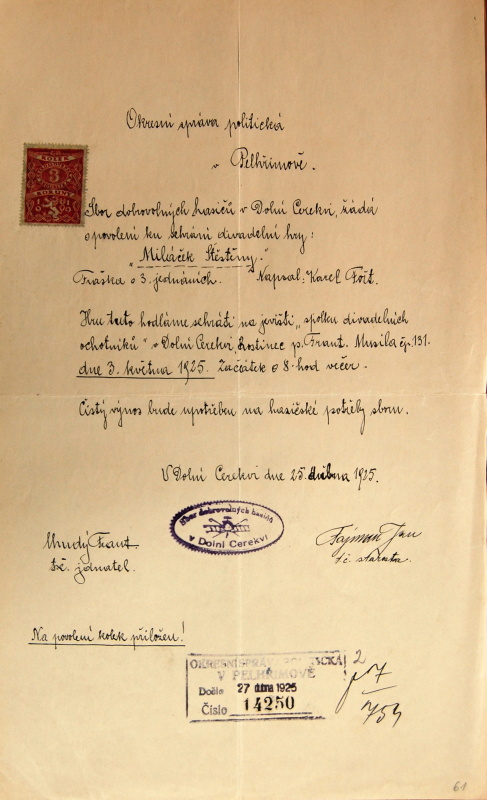 Okresní správa politická
v Pelhřimově.
KOLEK
3
KORUNY
Sbor dobrovolných hasičů v Dolní Cerekvi, žádá
o povolení ku sehrání divadelní hry:
„Miláček Štěstěny."
Fraška o 3. jednáních. Napsal: Karel Fořt.
Hru tuto hodláme sehráti na jevišti „spolku divadelních
ochotníků" v Dolní Cerekvi, hostinec p. Frant. Musila čp. 131.
dne 3. května 1925. Začátek o 8. hod večer.
Čistý výnos bude upotřeben na hasičské potřeby sboru.
V Dolní Cerekvi dne 25. dubna 1925.
Sbor dobrovolných hasičů
v Dolní Cerekvi
Chudý Frant
tč. jednatel.
Fajmon Jan
tč. starosta.
Na povolení kolek přiložen!
OKRESNÍ SPRÁVA POLITICKÁ
V PELHŘIMOVĚ
Došlo 27 dubna 1925
Číslo 14250
2
61